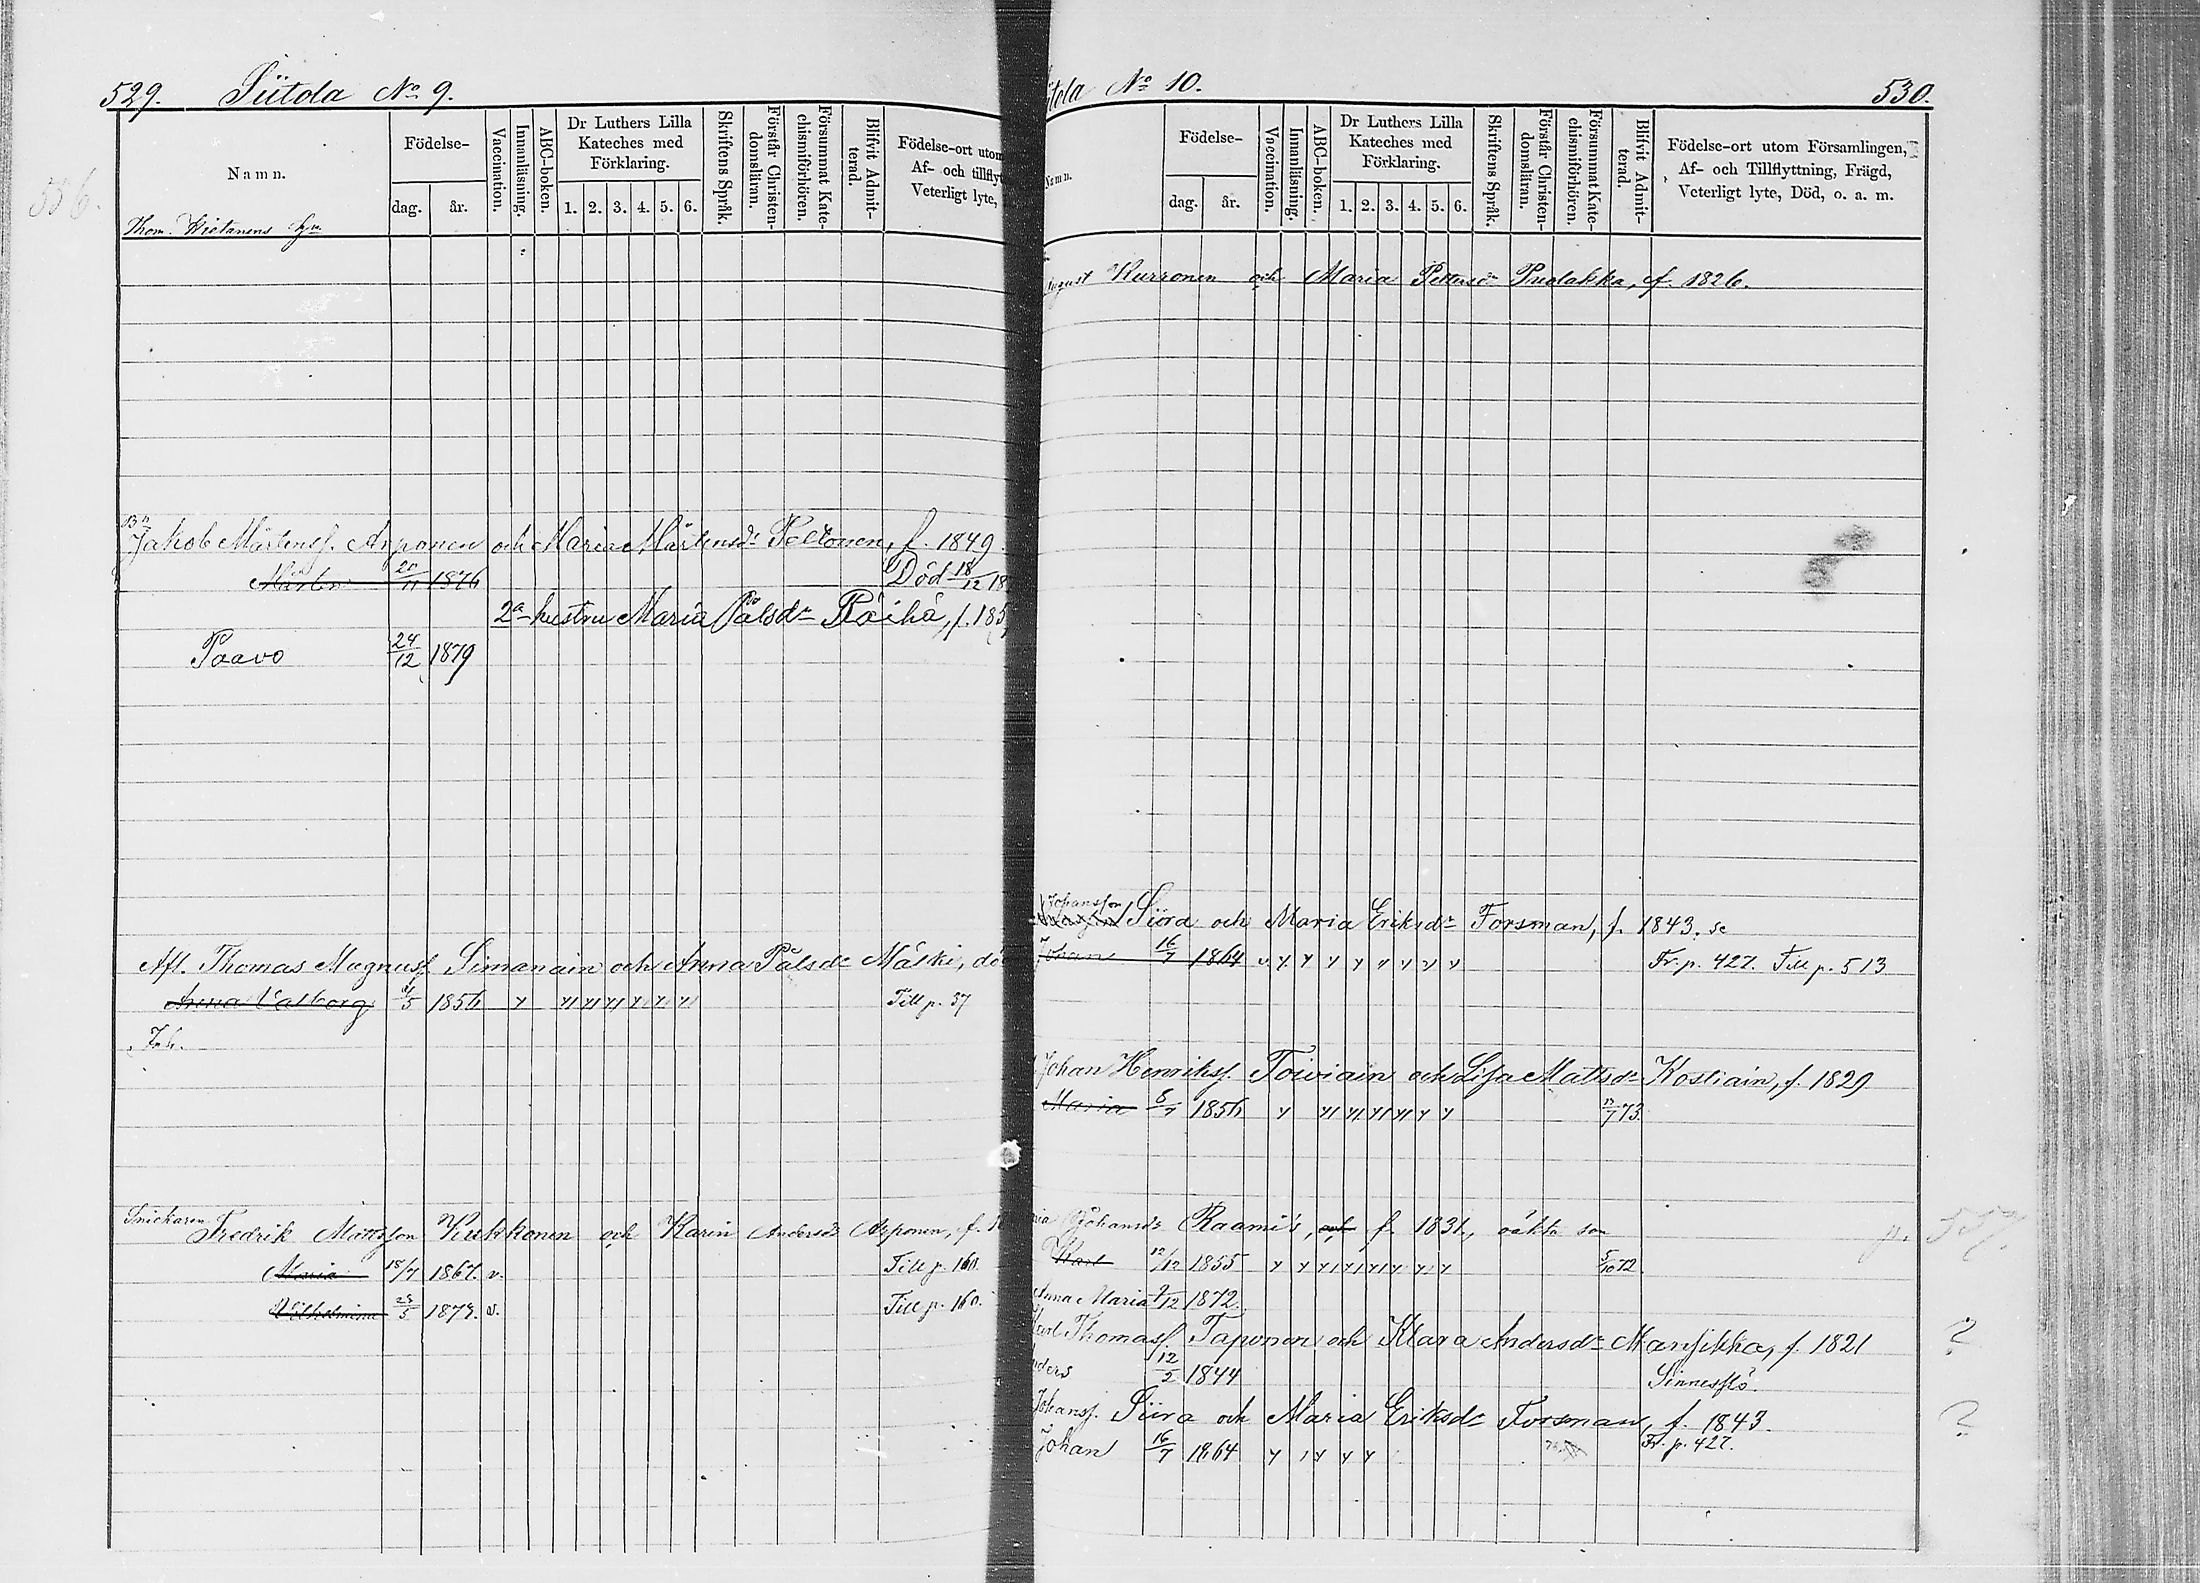 529. Siitola No 9.
Namn.
Födelse-
dag.
år.
Vaccination.
Innanläsning.
ABC-boken.
Dr Luthers Lilla
Kateches med
Förklaring.
1. 2. 3. 4. 5. 6.
Skriftens Språk.
Förstår Christen-
domsläran.
Försummat Kate-
chismiförhören.
Blifvit Admit-
terad.
Födelse-ort utom
Af- och tillflyt
Veterligt lyte,
536.
Thom.
Jakob Mårtenss. Arponen och Maria Mårtensdr Peltonen, f. 1849.
Mårten 20/11 1876 Död 18/12 18
2a hustru Maria Pålsdr Räihä, f. 185
Paavo 24/12 1879
Afl. Thomas Magnuss. Simanain och Anna Pålsdr Mälki, dö
Anna Valborg /5 1856 Till p. 37
Inh.
Snickaren Fredrik Mattsson Kukkonen och Karin Andersdr Arponen, f.
Maria 18/7 1867. v. Till p. 160.
Vilhelmina /5 1879. v. Till p. 160.
itola No 10. 530.
Namn.
Födelse-
dag.
år.
Vaccination.
Innanläsning.
ABC-boken.
Dr Luthers Lilla
Kateches med
Förklaring.
1. 2. 3. 4. 5. 6.
Skriftens Språk.
Förstår Christen-
domsläran.
Försummat Kate-
chismiförhören.
Blifvit Admit-
terad.
Födelse-ort utom Församlingen,
Af- och Tillflyttning, Frägd,
Veterligt lyte, Död, o. a. m.
August Kurronen och Maria Pettersdr Puolakka, f. 1826.
Johansson
Siira och Maria Eriksdr Forsman, f. 1843. se
Johan 16/7 1864 Fr. p. 427. Till p. 513
Johan Henrikss. Toiviain och Lisa Mattsdr Kostiain, f. 1829
Maria 8/7 1856 /7 73.
ria Johansdr Raami's, och f. 1831, oäkta son p. 537.
Karl 12/12 1855 5/10 72
Anna Maria 9/12 1872.
Karl Thomass. Taponen och Klara Andersdr Mansikka, f. 1821 ?
nders 12/2 1844 Sinnesslö.
Johanss. Siira och Maria Eriksdr Forsman, f. 1843. ?
Johan 16/7 1864 Fr. p. 427.